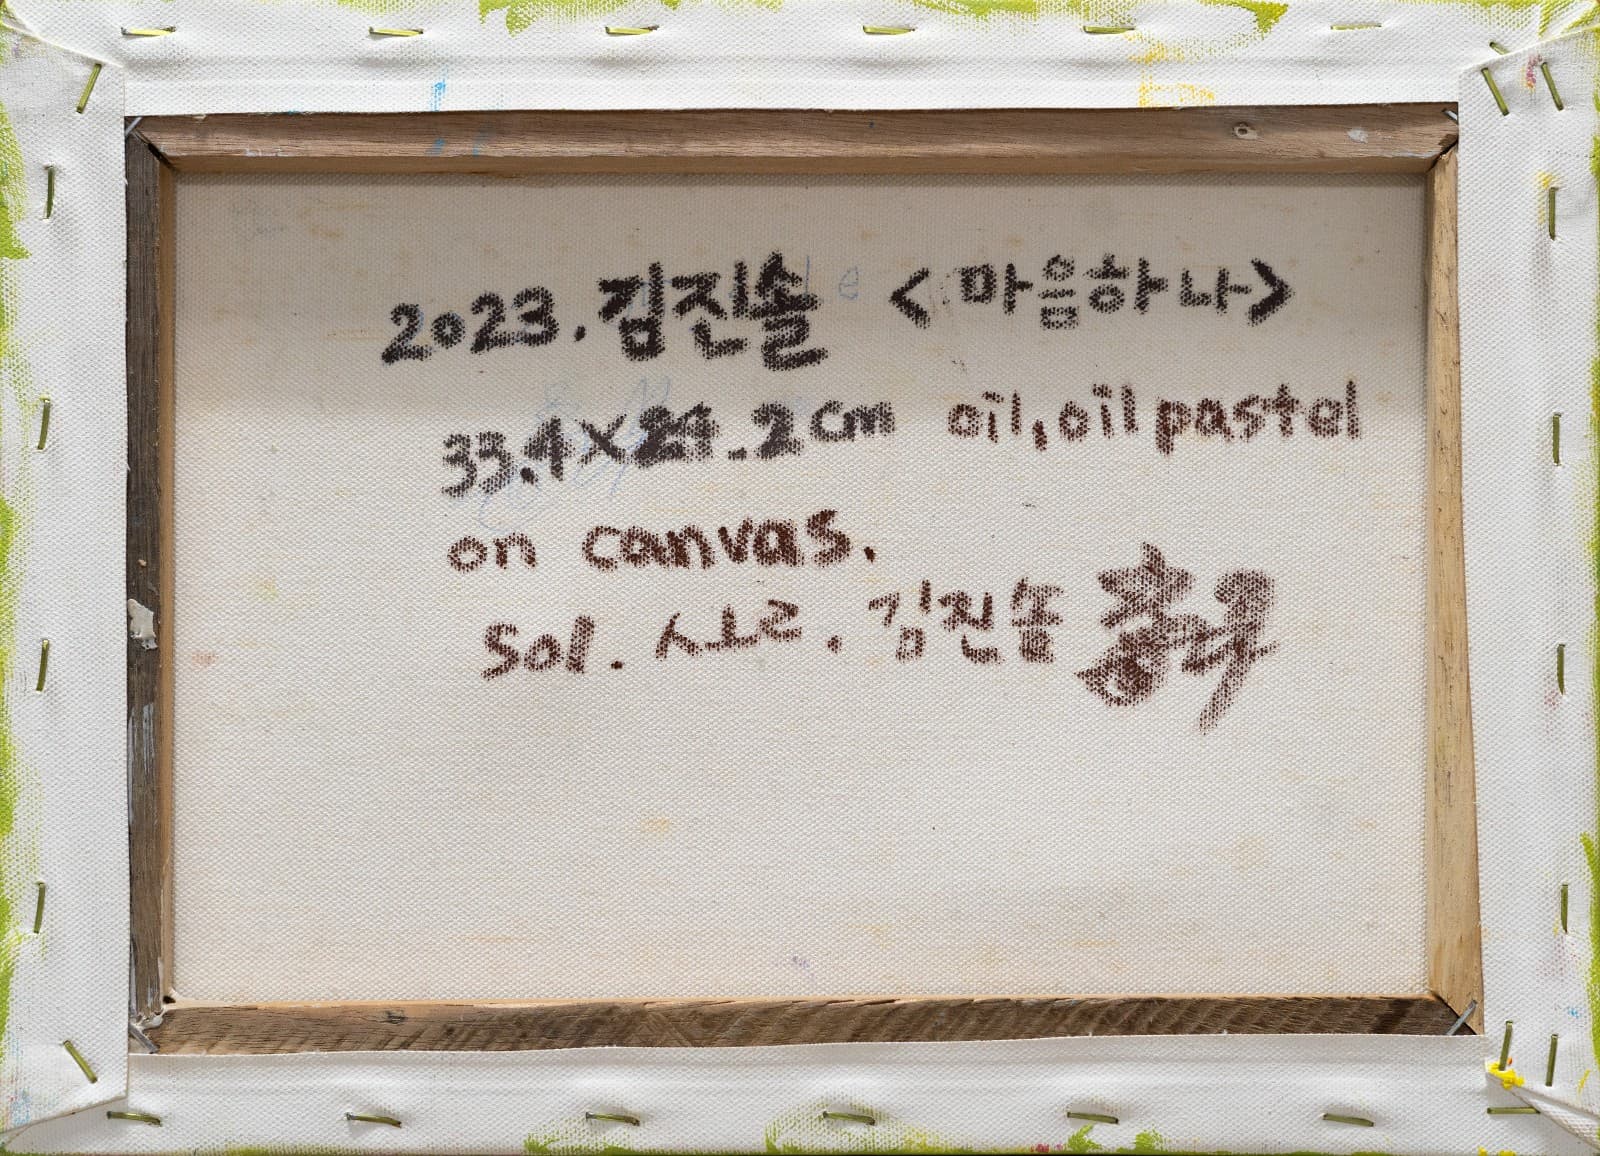 2023. 김진솔 <마음하나>
33.4X24.2cm oil, oil pastel
on canvas.
Sol. ㅅㅗㄹ. 김진솔